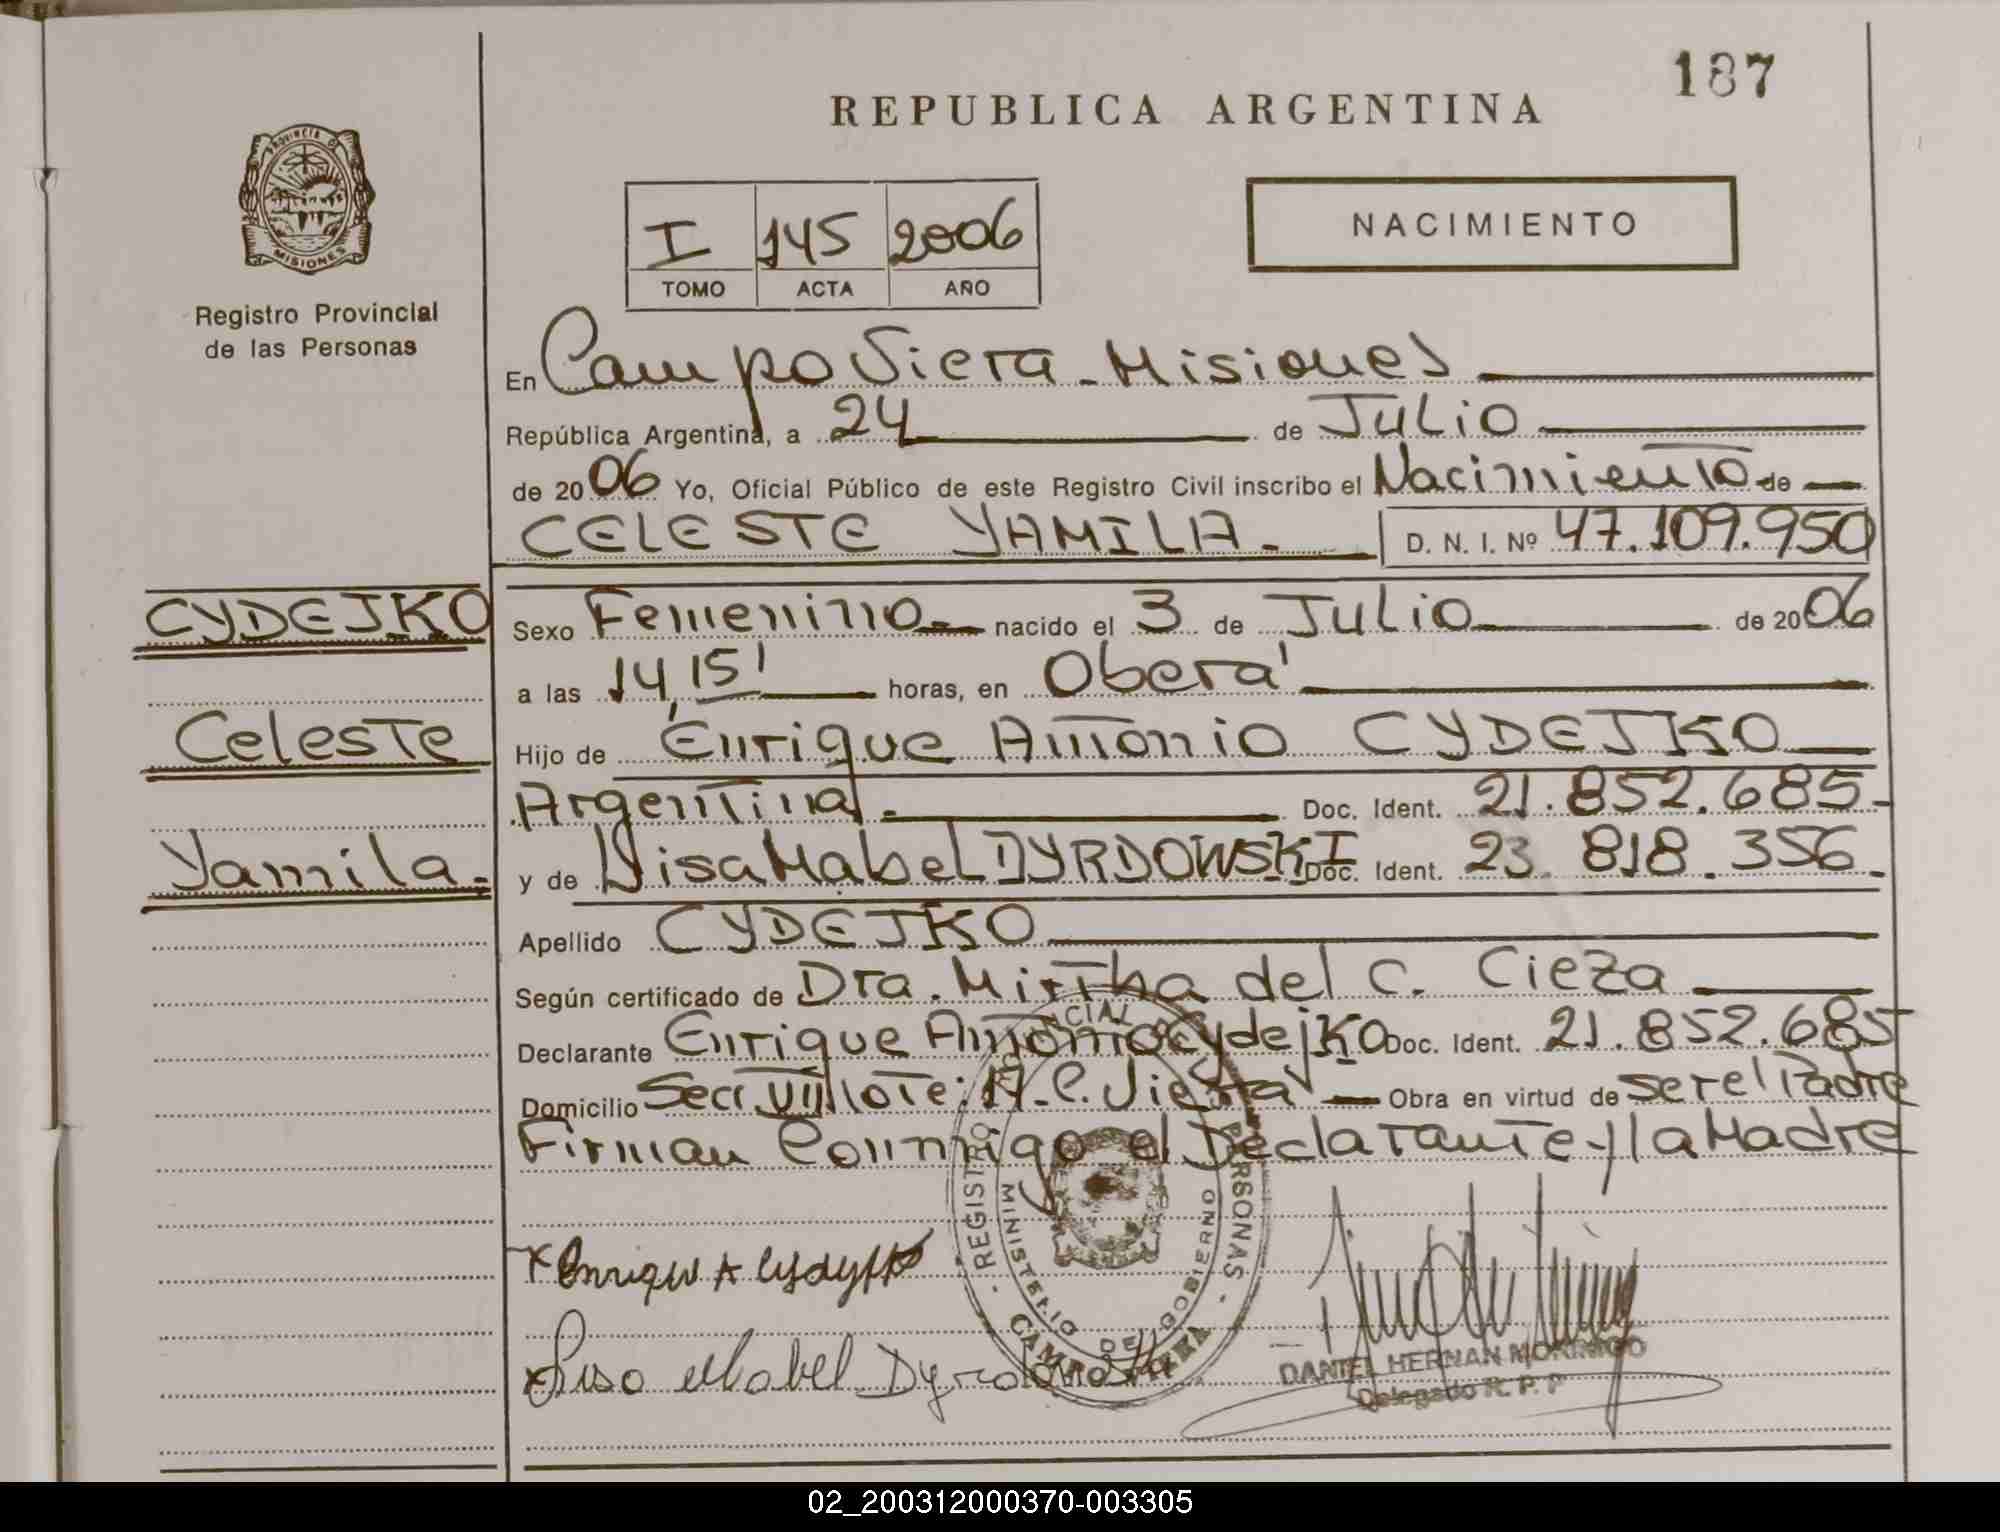 187
REPUBLICA ARGENTINA
PROVINCIA DE
MISIONES
Registro Provincial
de las Personas
I 145 2006
TOMO ACTA AÑO
NACIMIENTO
En Campo Viera - Misiones
República Argentina, a 24 de Julio
de 2006 Yo, Oficial Público de este Registro Civil inscribo el Nacimiento de
CELESTE YAMILA. D. N. I. Nº 47.109.950
CYDEJKO
Celeste
Yamila.
Sexo Femenino nacido el 3 de Julio de 2006
a las 14,15' horas, en Oberá
Hijo de Enrique Antonio CYDEJKO
Argentina. Doc. Ident. 21.852.685
y de Lisa Mabel DYRDOWSKI Doc. Ident. 23.818.356.
Apellido CYDEJKO
Según certificado de Dra. Mirtha del C. Cieza
Declarante Enrique Antonio Cydejko Doc. Ident. 21.852.685
Domicilio Secc. VIII lote: C. Viera Obra en virtud de ser el Padre
Firman Conmigo el Declarante y la Madre
x Enrique A Cydejko
x Lisa Mabel Dyrdowski
REGISTRO PERSONAS
MINISTERIO DE GOBIERNO
CAMPO VIERA
DANIEL HERNAN MORINIGO
Delegado R. P. P
02_200312000370-003305